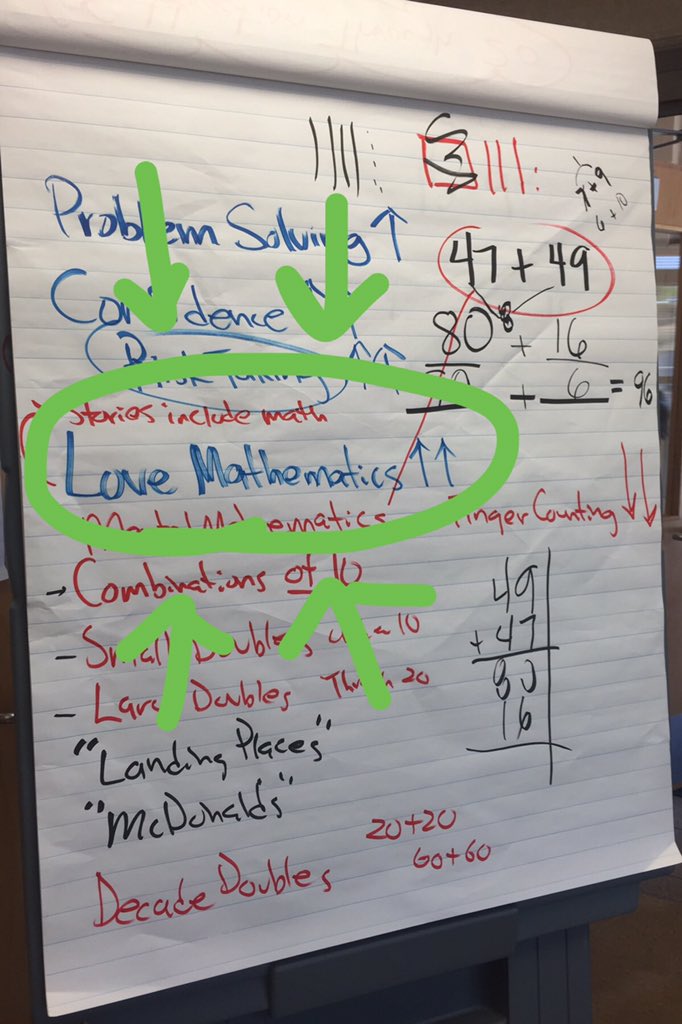 Problem Solving ↑
Confidence
Risk Taking ↑↑
stories include math
Love Mathematics ↑↑
Mental Mathematics
Finger Counting ↓↓
→ Combinations of 10
- Small Doubles 10
- Large Doubles Through 20
"Landing Places"
"McDonalds"
Decade Doubles
20+20
60+60
7+9
6+10
47+49
80 + 16
+ 6 = 96
49
+ 47
80
16